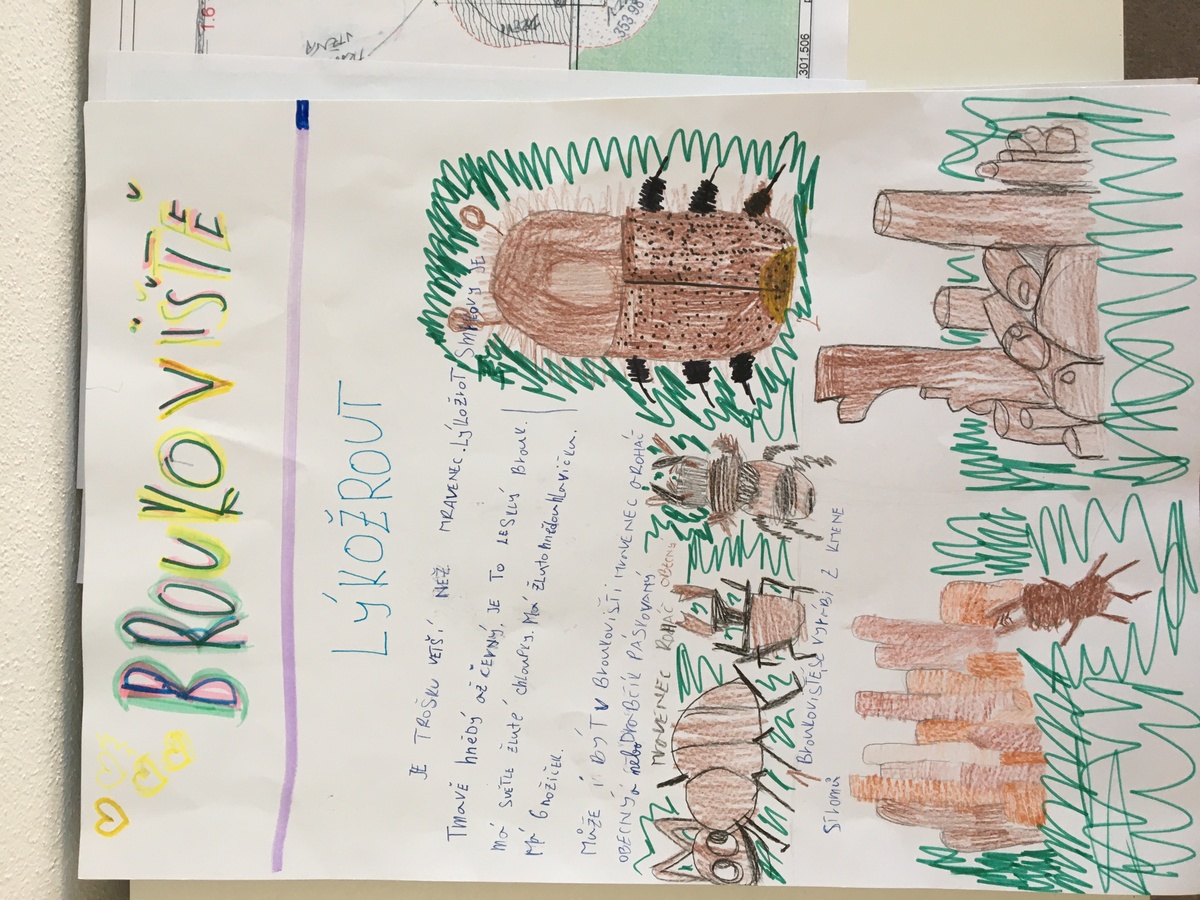 BROUKOVIŠTĚ
LÝKOŽROUT
JE TROŠKU VĚTŠÍ NEŽ MRAVENEC. LÝKOŽROT SMRKOVÝ JE
Tmavě hnědý až ČERNÝ. JE TO LESKLÝ Brouk.
má SVĚTLE žluté chloupky. Má žlutohnědou hlavičku.
Má 6 nožiček.
Může jí BÝT V BROUKOVIŠTI MRAVENEC ROHÁČ
OBECNÝ a nebo DrobČÍK PÁSKOVANÝ
MRAVENEC ROHÁČ OBECNÝ
BROUKOVIŠTĚ SE VYrábí Z KMENE
Stromů
1.6
301.506